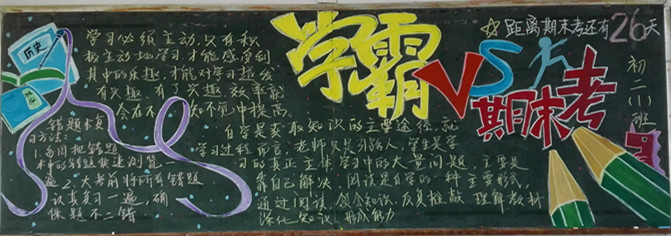 历史
学习必须主动,只有积
极主动地学习才能感受到
其中的乐趣,才能对学习越发
有兴趣。有了兴趣,效率就
会在不知不觉中提高。
错题本复
习方法:
1.每周把错题
本中的错题快速浏览一
遍 2.大考前将所有错题
认真复习一遍,确
保题不二错
自学是获取知识的主要途径,就
学习过程而言,老师只是引路人,学生是学
习的真正主体,学习中的大量问题,主要是
靠自己解决。阅读是自学的一种主要形式,
通过阅读,领会知识,反复推敲,理解教材
深化知识,形成能力
学霸
VS
期末考
距离期末考还有26天
初二(1)班